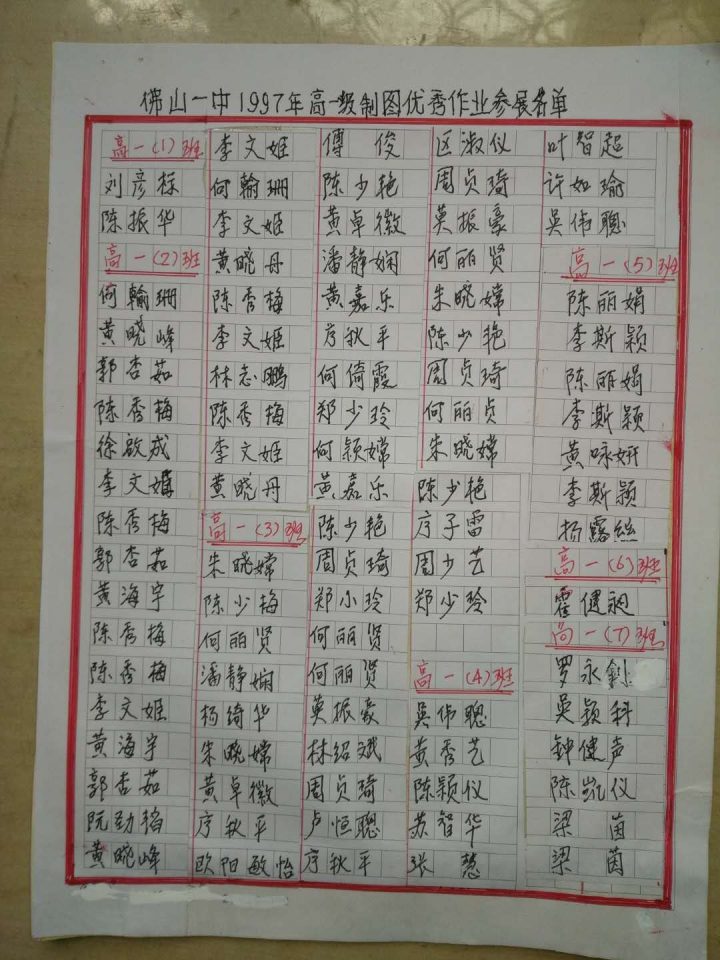 佛山一中1997年高一级制图优秀作业参展名单
高一(1)班
刘彦标
陈振华
高一(2)班
何翰珊
黄晓峰
郭杏茹
陈秀梅
徐啟成
李文娟
陈秀梅
郭杏茹
黄海宇
陈秀梅
陈秀梅
李文姬
黄海宇
郭杏茹
阮劲韬
黄晓峰
李文姬
何翰珊
李文姬
黄晓丹
陈秀梅
李文姬
林志鹏
陈秀梅
李文姬
黄晓丹
高一(3)班
朱晓嫦
陈少梅
何丽贤
潘静娴
杨绮华
朱晓嫦
黄卓徽
序秋平
欧阳敏怡
傅俊
陈少艳
黄卓徽
潘静娴
黄嘉乐
序秋平
何倚霞
郑少玲
何颖嫦
黄嘉乐
陈少艳
周贞琦
郑小玲
何丽贤
何丽贤
莫振豪
林绍斌
周贞琦
卢恒聪
序秋平
区淑仪
周贞琦
莫振豪
何丽贤
朱晓嫦
陈少艳
周贞琦
何丽贞
朱晓嫦
陈少艳
序子雷
周少艺
郑少玲
高一(4)班
吴伟聪
黄秀艺
陈颖仪
苏智华
张慧
叶智超
许如瑜
吴伟聪
高一(5)班
陈丽娟
李斯颖
陈丽娟
李斯颖
黄咏妍
李斯颖
杨露丝
高一(6)班
霍健昶
高一(7)班
罗永釗
吴颖科
钟健声
陈凯仪
梁茵
梁茵